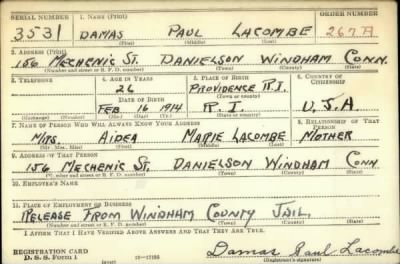 SERIAL NUMBER 1. NAME (Print) ORDER NUMBER
3531 DAMAS PAUL LACOMBE 267A
(First) (Middle) (Last)
2. ADDRESS (Print)
156 MECHENIC ST. DANIELSON WINDHAM CONN.
(Number and street or R. F. D. number) (Town) (County) (State)
3. TELEPHONE 4. AGE IN YEARS 5. PLACE OF BIRTH 6. COUNTRY OF CITIZENSHIP
26 PROVIDENCE R.I.
(Town or county)
DATE OF BIRTH
FEB 16 1914 R.I. U.S.A
(Exchange) (Number) (Mo.) (Day) (Yr.) (State or country)
7. NAME OF PERSON WHO WILL ALWAYS KNOW YOUR ADDRESS 8. RELATIONSHIP OF THAT PERSON
MRS. AIDEA MARIE LACOMBE MOTHER
(Mr., Mrs., Miss) (First) (Middle) (Last)
9. ADDRESS OF THAT PERSON
156 MECHENIC ST. DANIELSON WINDHAM CONN
(Number and street or R. F. D. number) (Town) (County) (State)
10. EMPLOYER'S NAME
11. PLACE OF EMPLOYMENT OR BUSINESS
RELEASE FROM WINDHAM COUNTY JAIL.
(Number and street or R. F. D. number) (Town) (County) (State)
I AFFIRM THAT I HAVE VERIFIED ABOVE ANSWERS AND THAT THEY ARE TRUE.
REGISTRATION CARD
D. S. S. Form 1 (over) 16—17105 Damas Paul Lacombe